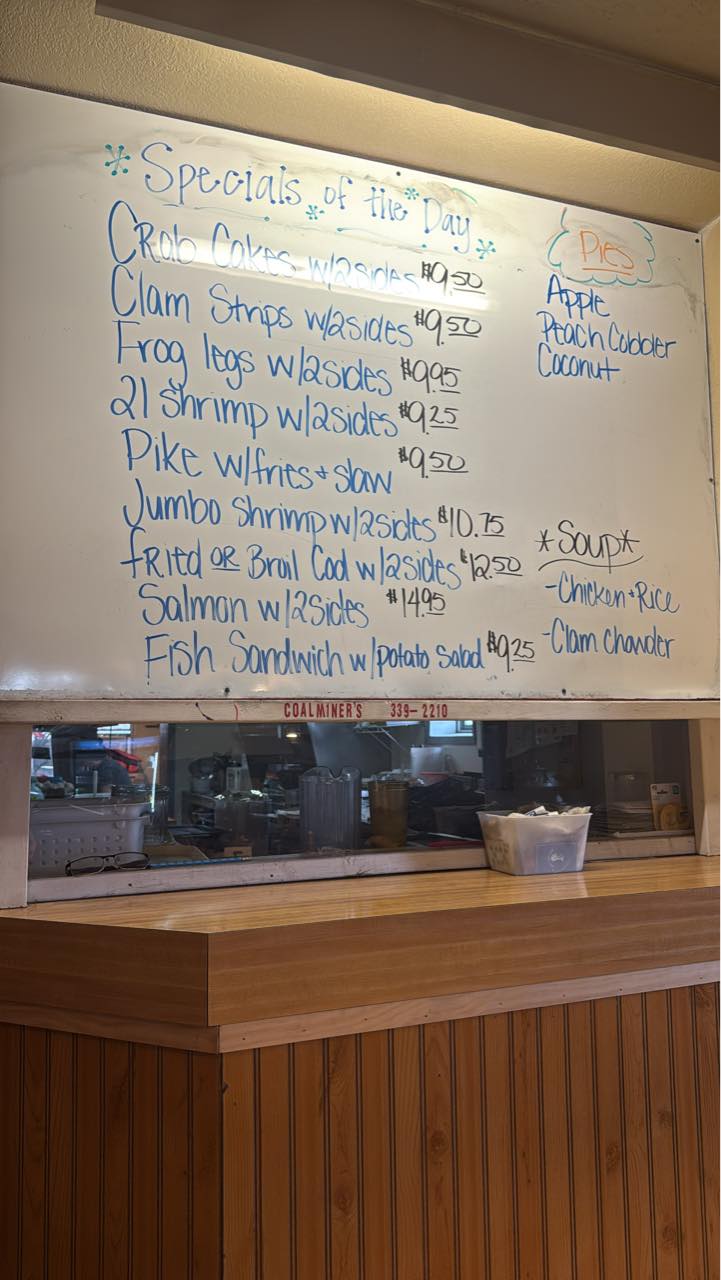 Specials of the Day
Crab Cakes w/2sides $9.50
Clam Strips w/2sides $9.50
Frog legs w/2sides $9.95
21 Shrimp w/2sides $9.25
Pike w/fries + slaw $9.50
Jumbo Shrimp w/2sides $10.75
fried OR Broil Cod w/2sides $12.50
Salmon w/2Sides $14.95
Fish Sandwich w/potato Salad $9.25
Pies
Apple
Peach Cobbler
Coconut
*Soup*
-Chicken + Rice
-Clam chowder
COALMINER'S 339-2210